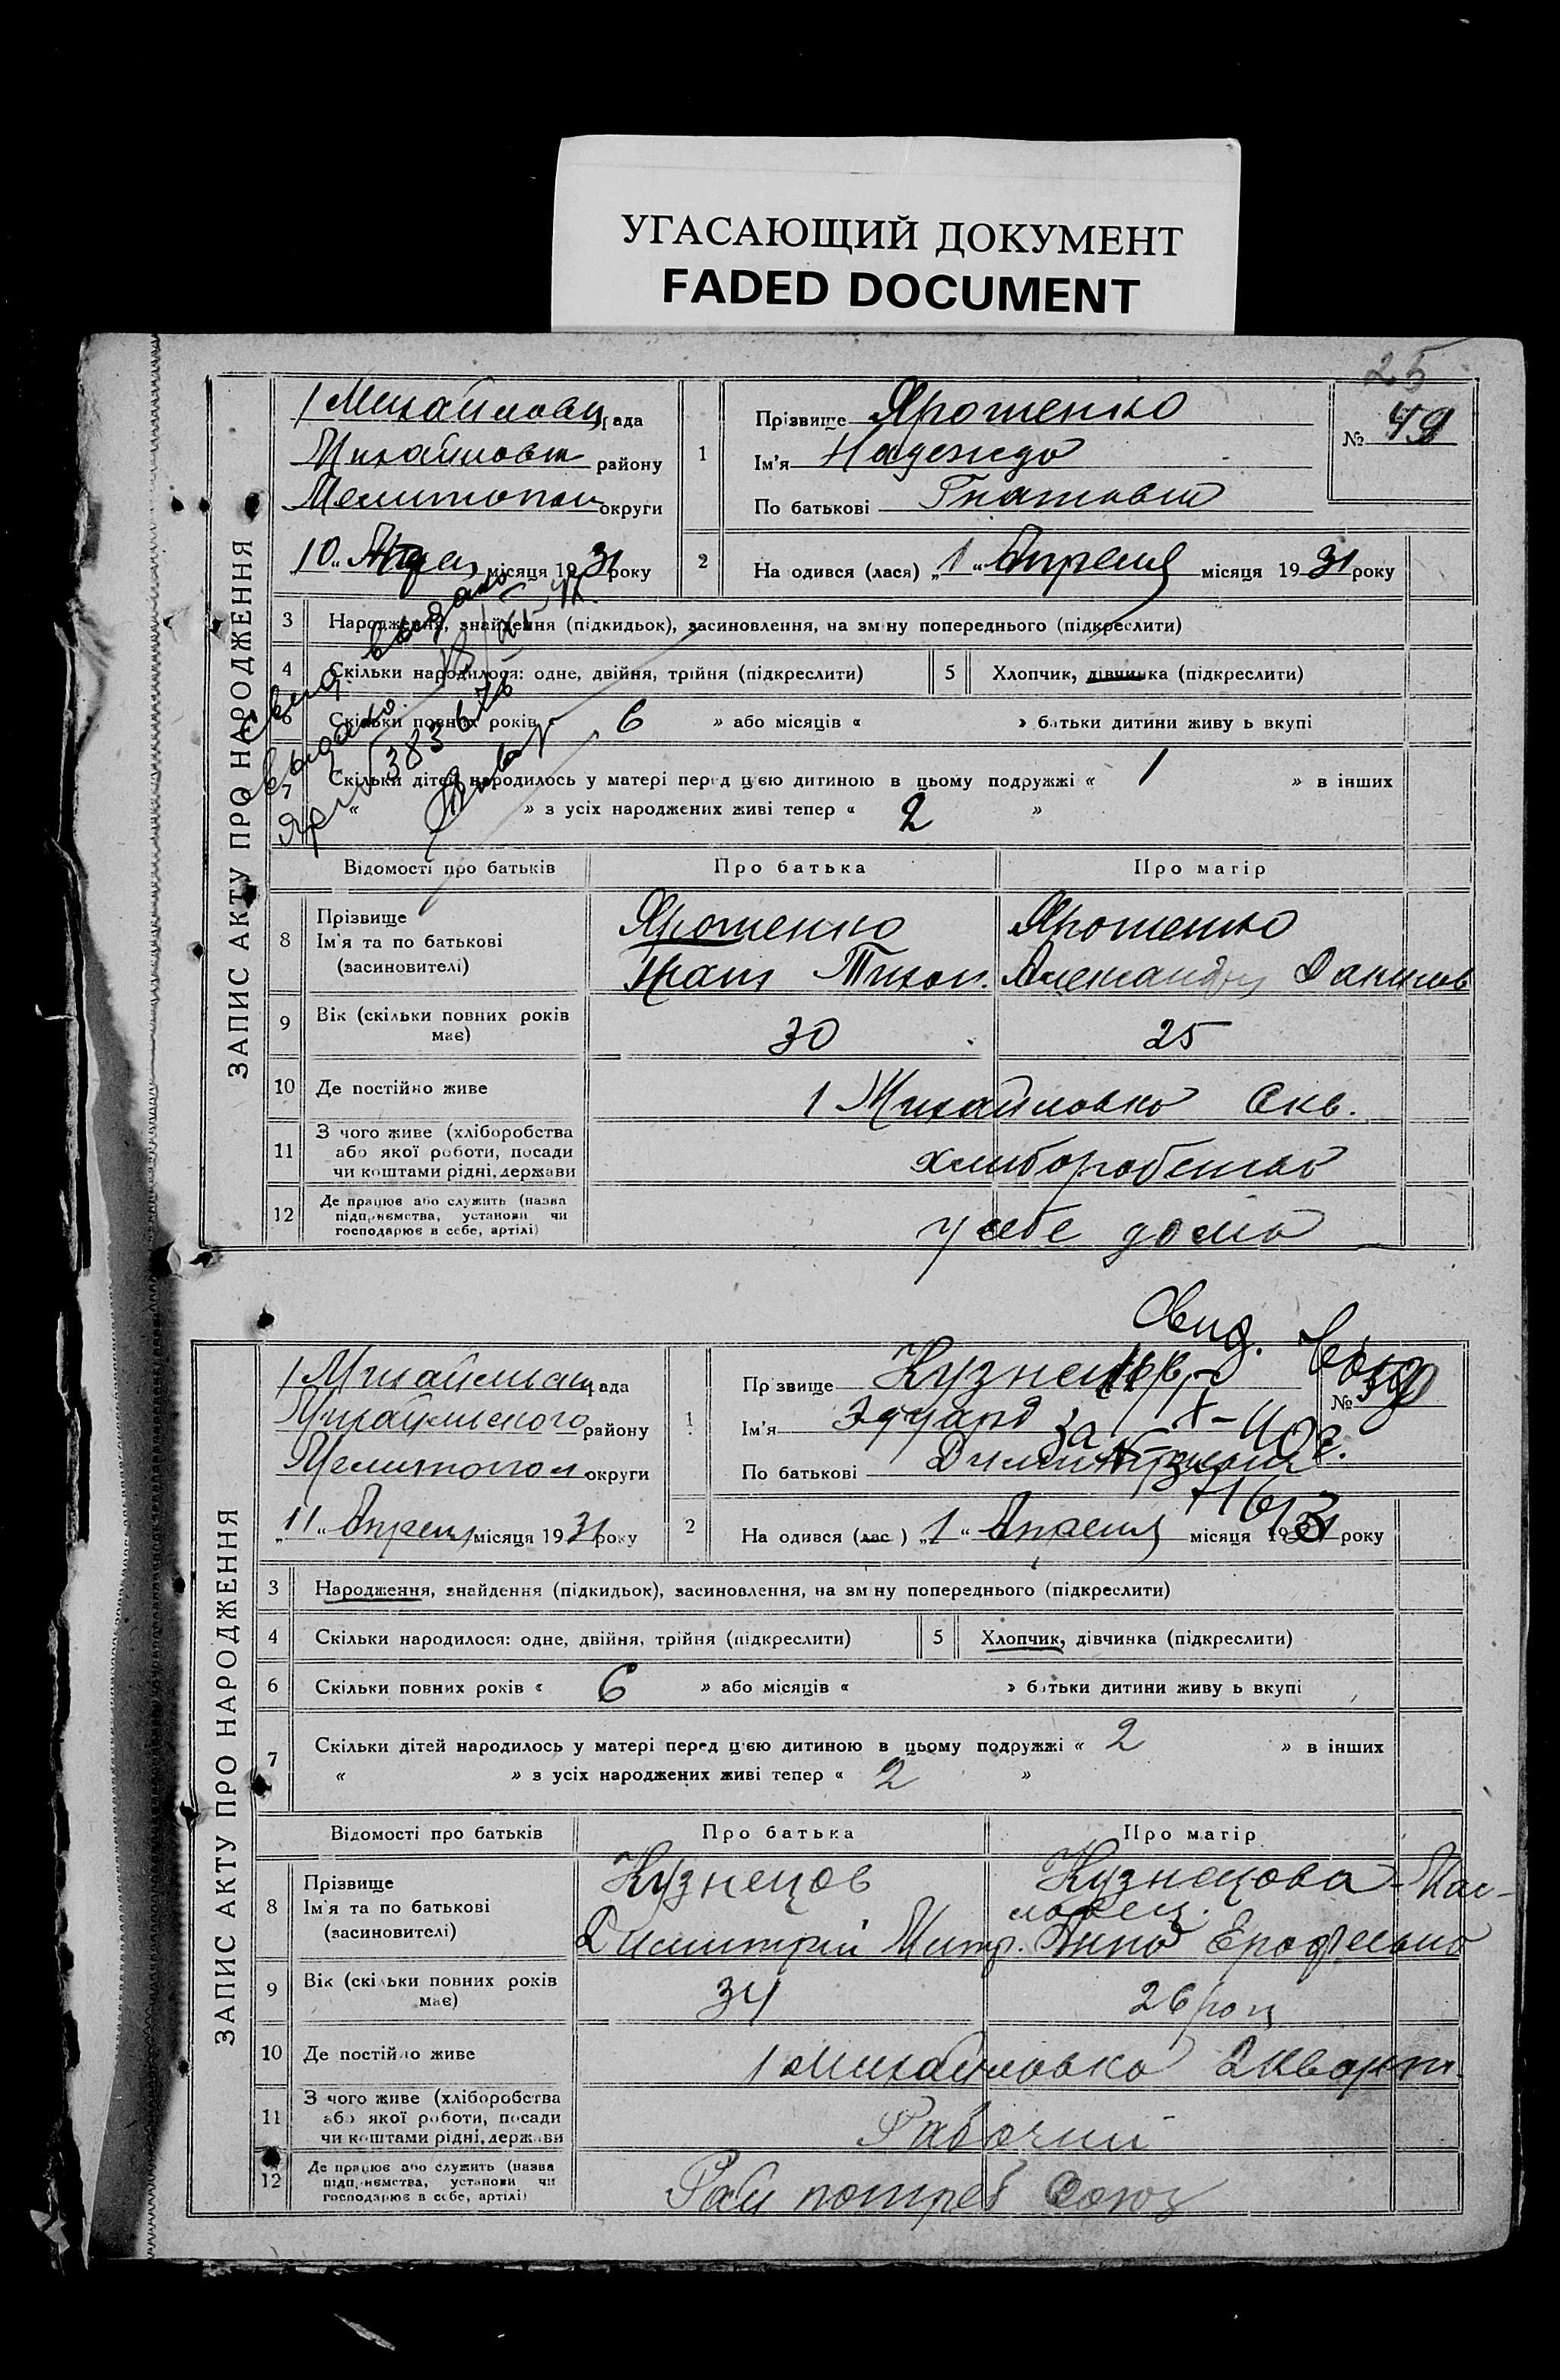 УГАСАЮЩИЙ ДОКУМЕНТ
FADED DOCUMENT
25
ЗАПИС АКТУ ПРО НАРОДЖЕННЯ
1 Михайловц рада
району
Мелитопол округи
„10„ місяця 1931 року
1
Прізвище Ярошенко
Ім'я Надежда
По батькові Гнатовна
№ 49
2
На одився (лася) „1„ Апреля місяця 1931 року
3 Народження, знайдення (підкидьок), засиновлення, на зм ну попереднього (підкреслити)
4 Скільки народилося: одне, двійня, трійня (підкреслити)
5 Хлопчик, дівчинка (підкреслити)
6 Скільки повних років « 6 » або місяців « » батьки дитини живу ь вкупі
7 Скільки дітей народилось у матері перед цією дитиною в цьому подружжі « 1 » в інших
« » з усіх народжених живі тепер « 2 »
Свид. выдано
выдано
383676
Відомості про батьків Про батька Про матір
8 Прізвище
Ім'я та по батькові
(засиновителі)
Ярошенко
Гнат Тихон.
Ярошенко
Александра Данилов
9 Вік (скільки повних років має) 30 25
10 Де постійно живе 1 Михайловка 6 кв.
11 З чого живе (хліборобства
або якої роботи, посади
чи коштами рідні, держави
хлиборобство
12 Де працює або служить (назва
підприємства, установи чи
господарює в себе, артілі)
у себе дома
Свид. выд
за № X-40г.
ЗАПИС АКТУ ПРО НАРОДЖЕННЯ
1 рада
району
Мелитопол округи
„11„ Апреля місяця 1931 року
1
Пр звище Кузнецов
Ім'я Эдуард
По батькові
№ 50
2
На одився (лас ) „1„ Апреля місяця 1931 року
3 Народження, знайдення (підкидьок), засиновлення, на зм ну попереднього (підкреслити)
4 Скільки народилося: одне, двійня, трійня (підкреслити)
5 Хлопчик, дівчинка (підкреслити)
6 Скільки повних років « 6 » або місяців « » батьки дитини живу ь вкупі
7 Скільки дітей народилось у матері перед цією дитиною в цьому подружжі « 2 » в інших
« » з усіх народжених живі тепер « 2 »
Відомості про батьків Про батька Про матір
8 Прізвище
Ім'я та по батькові
(засиновителі)
Кузнецов
Димитрий Митр.
Кузнецова-Мас-
ловец.
Анна Ерофеевна
9 Вік (скільки повних років має) 34 26 роц
10 Де постійно живе 1 Михайловка 2 кварт.
11 З чого живе (хліборобства
або якої роботи, посади
чи коштами рідні, держави
Рабочий
12 Де працює або служить (назва
підприємства, установи чи
господарює в себе, артілі)
Рай потреб союз